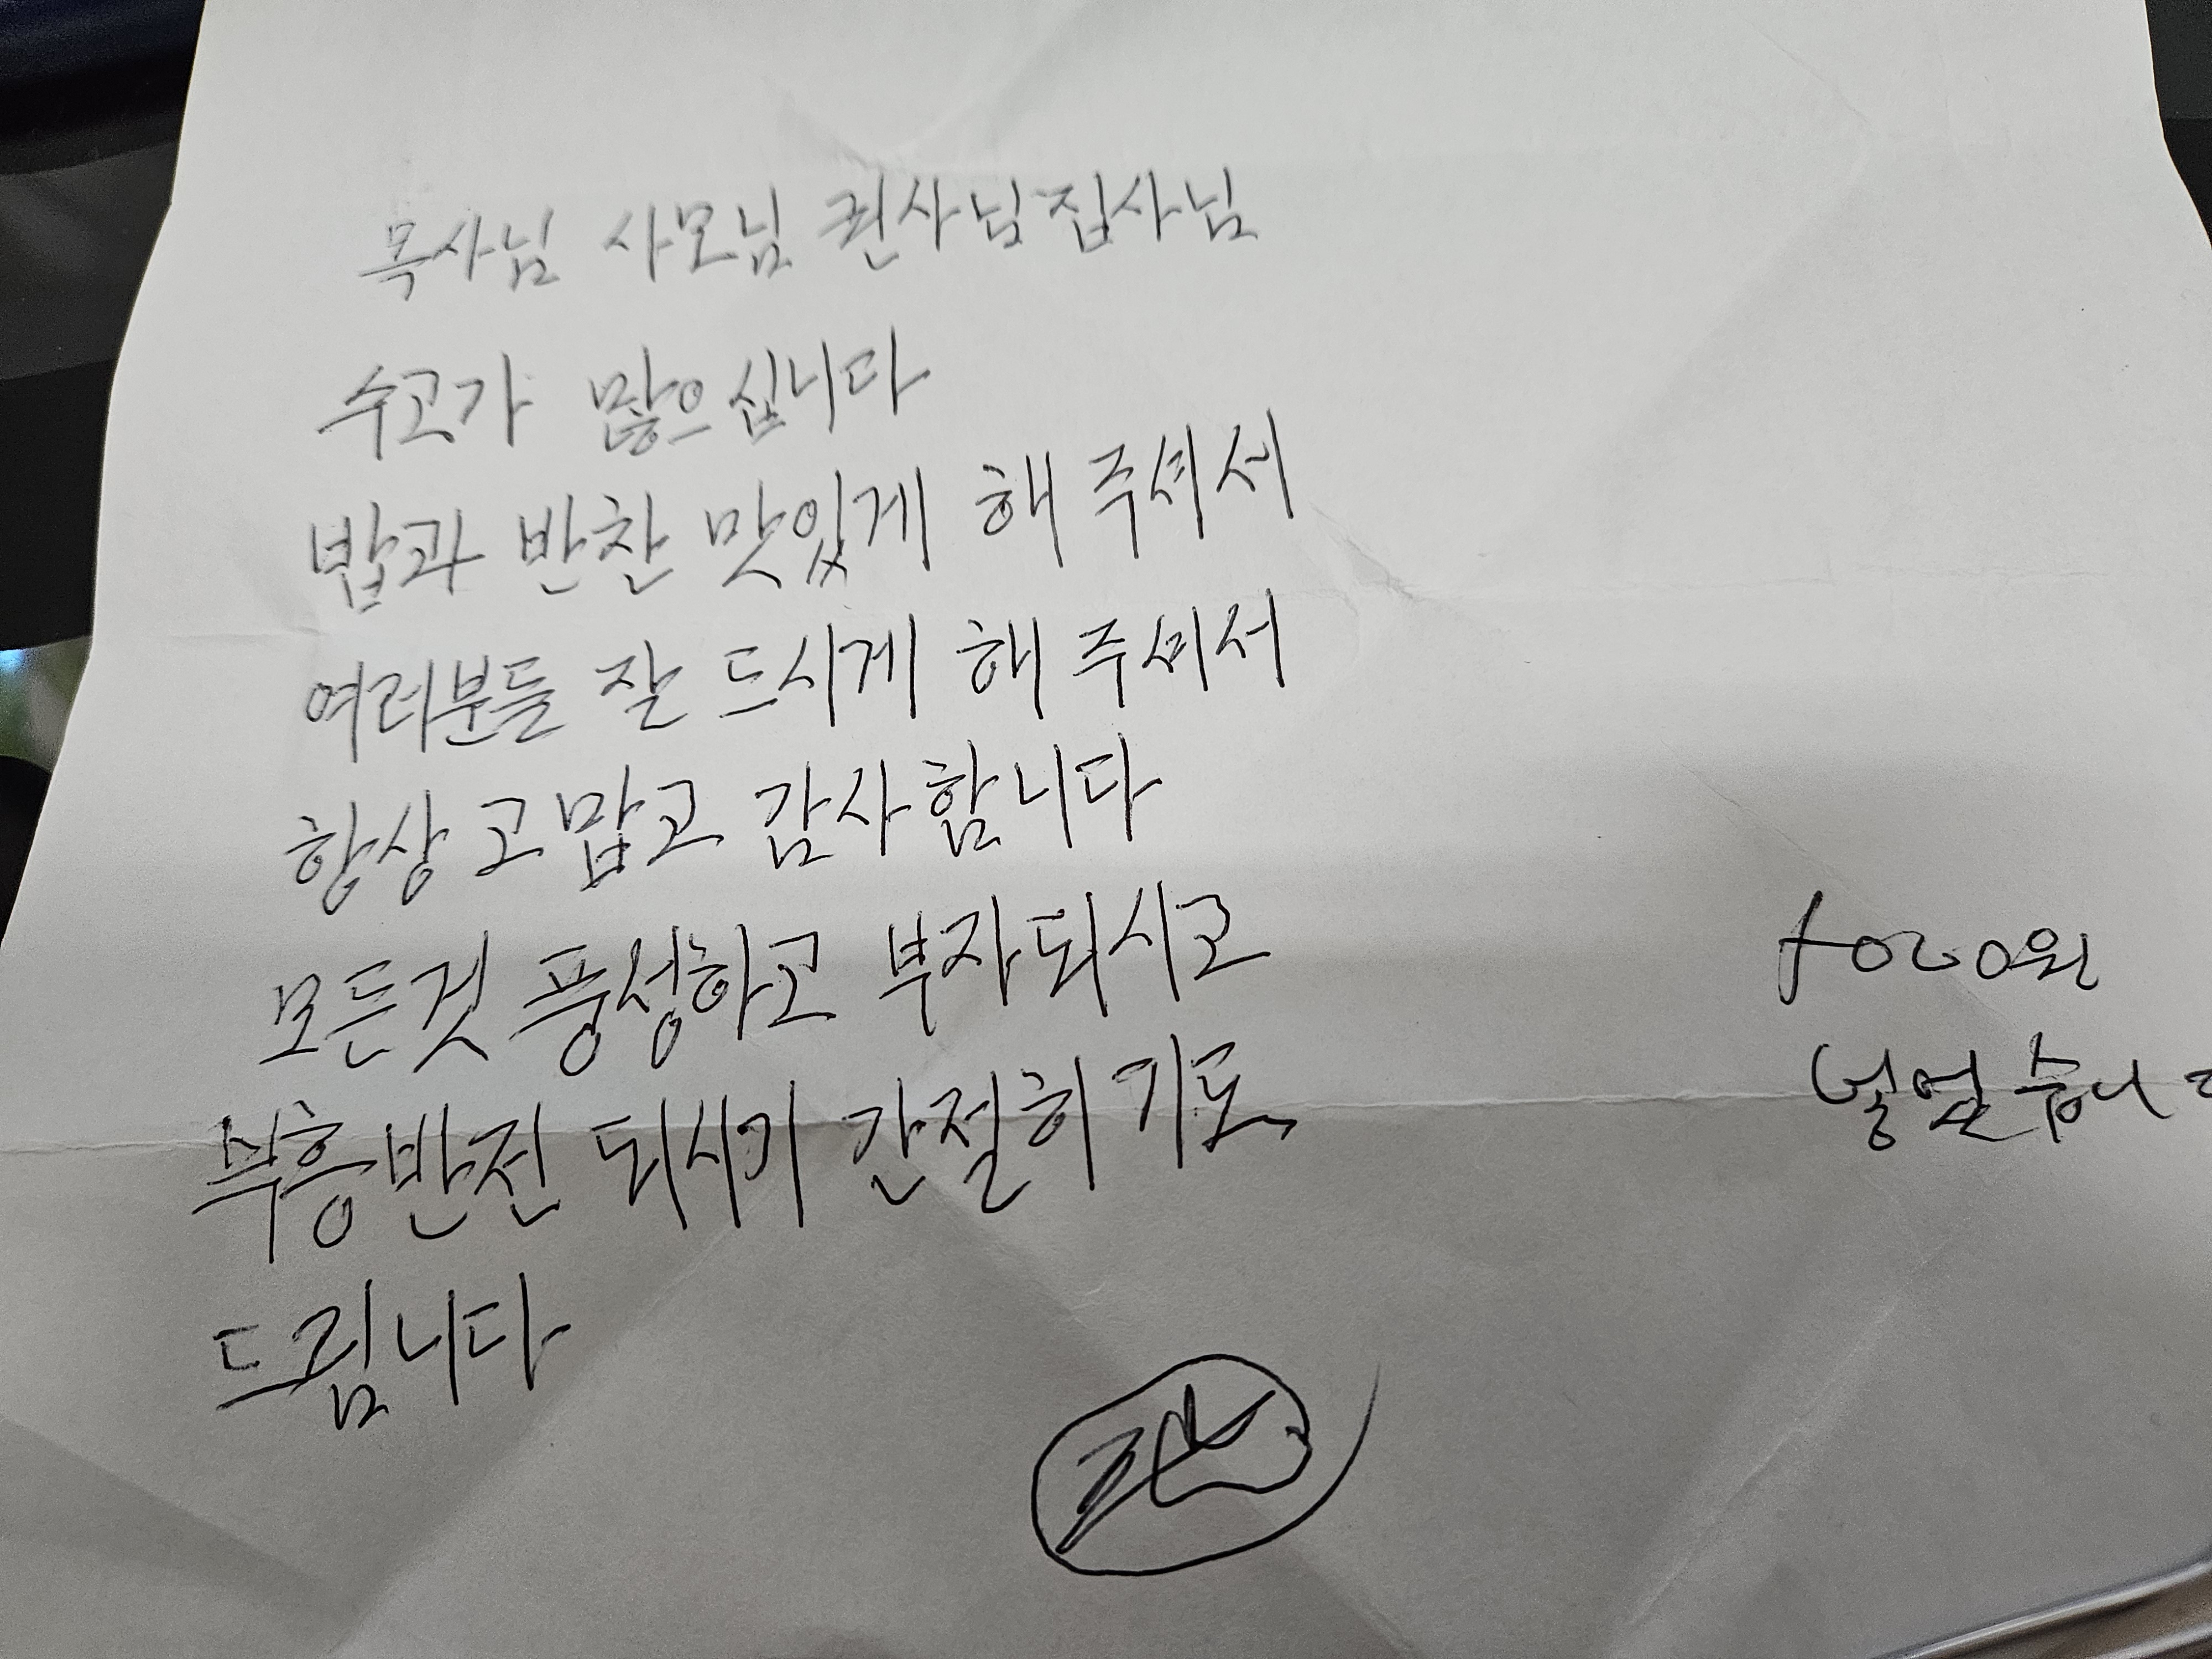 목사님 사모님 권사님 집사님
수고가 많으십니다
밥과 반찬 맛있게 해 주셔서
여러분들 잘 드시게 해 주셔서
항상 고맙고 감사합니다
모든것 풍성하고 부자되시고
부흥반전 되시기 간절히 기도
드립니다
원
넣었습니다